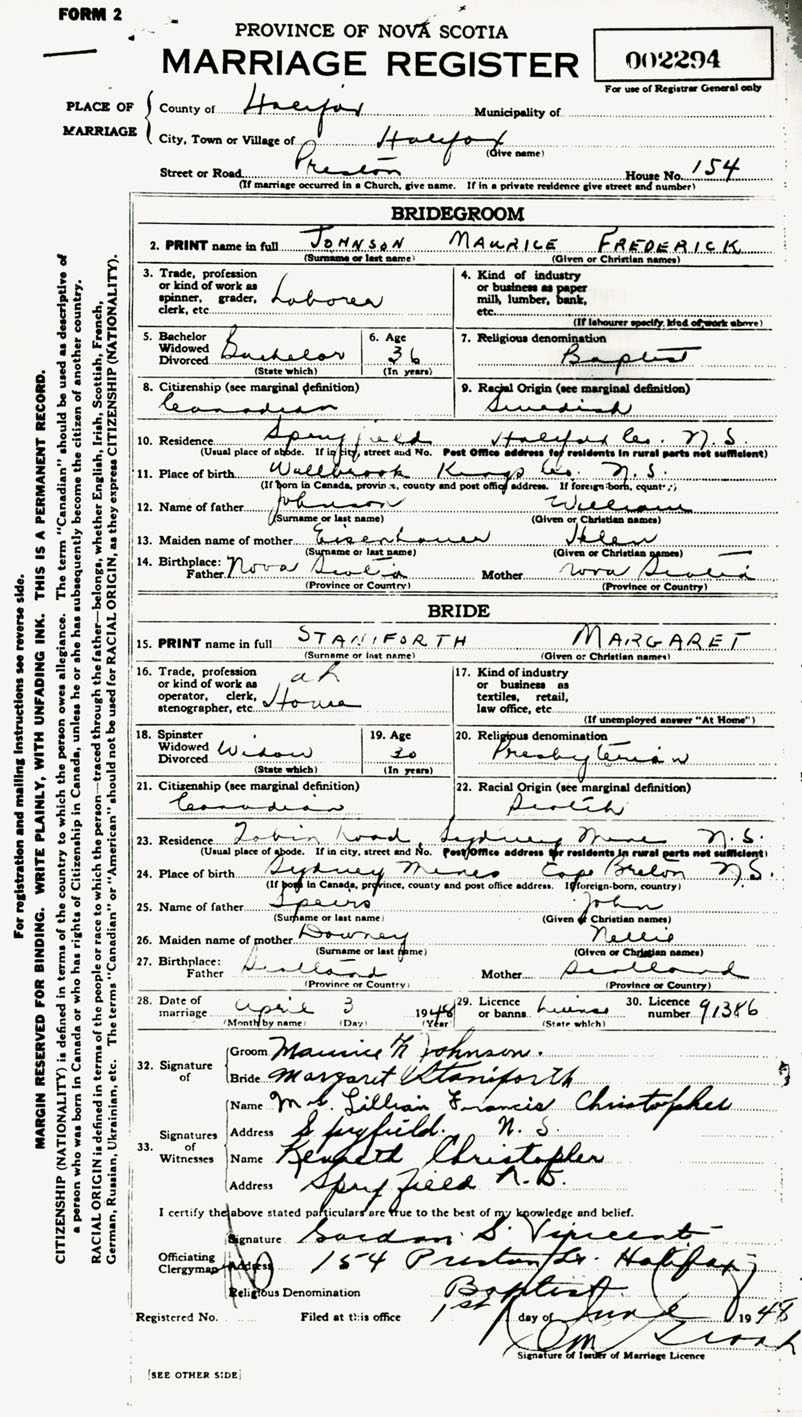 FORM 2
PROVINCE OF NOVA SCOTIA
MARRIAGE REGISTER
002294
For use of Registrar General only
PLACE OF MARRIAGE
County of Halifax Municipality of
City, Town or Village of Halifax
(Give name)
Street or Road Preston House No. 154
(If marriage occurred in a Church, give name. If in a private residence give street and number)
BRIDEGROOM
2. PRINT name in full JOHNSON MAURICE FREDERICK
(Surname or last name) (Given or Christian names)
3. Trade, profession or kind of work as spinner, grader, clerk, etc. Laborer
4. Kind of industry or business as paper mill, lumber, bank, etc.
(If labourer specify kind of work above)
5. Bachelor Widowed Divorced Bachelor
(State which)
6. Age 36
(In years)
7. Religious denomination
Baptist
8. Citizenship (see marginal definition)
Canadian
9. Racial Origin (see marginal definition)
Swedish
10. Residence Spryfield Halifax Co. N.S.
(Usual place of abode. If in city, street and No. Post Office address for residents in rural parts not sufficient)
11. Place of birth Wallbrook Kings Co. N.S.
(If born in Canada, province, county and post office address. If foreign-born, country)
12. Name of father Johnson William
(Surname or last name) (Given or Christian names)
13. Maiden name of mother Eisenhauer Helen
(Surname or last name) (Given or Christian names)
14. Birthplace: Father Nova Scotia Mother Nova Scotia
(Province or Country) (Province or Country)
BRIDE
15. PRINT name in full STANIFORTH MARGARET
(Surname or last name) (Given or Christian names)
16. Trade, profession or kind of work as operator, clerk, stenographer, etc. at Home
17. Kind of industry or business as textiles, retail, law office, etc.
(If unemployed answer "At Home")
18. Spinster Widowed Divorced Widow
(State which)
19. Age 30
(In years)
20. Religious denomination
Presbyterian
21. Citizenship (see marginal definition)
Canadian
22. Racial Origin (see marginal definition)
Scotch
23. Residence Tobin Road, Sydney Mines N.S.
(Usual place of abode. If in city, street and No. Post Office address for residents in rural parts not sufficient)
24. Place of birth Sydney Mines Cape Breton N.S.
(If born in Canada, province, county and post office address. If foreign-born, country)
25. Name of father Speirs John
(Surname or last name) (Given or Christian names)
26. Maiden name of mother Downey Nellie
(Surname or last name) (Given or Christian names)
27. Birthplace: Father Scotland Mother Scotland
(Province or Country) (Province or Country)
28. Date of marriage April 3 1948
(Month by name) (Day) (Year)
29. Licence or banns License
(State which)
30. Licence number 91386
32. Signature of
Groom Maurice F. Johnson.
Bride Margaret Staniforth
33. Signatures of Witnesses
Name Lillian Francis Christopher
Address Spryfield. N.S.
Name Kenneth Christopher
Address Spryfield N.S.
I certify the above stated particulars are true to the best of my knowledge and belief.
Officiating Clergyman
Signature Gordon S. Vincent
Address 154 Preston St. Halifax
Religious Denomination Baptist
Registered No. Filed at this office 1st day of June 1948
Signature of Issuer of Marriage Licence
[SEE OTHER SIDE]
For registration and mailing instructions see reverse side.
MARGIN RESERVED FOR BINDING. WRITE PLAINLY, WITH UNFADING INK. THIS IS A PERMANENT RECORD.
CITIZENSHIP (NATIONALITY) is defined in terms of the country to which the person owes allegiance. The term "Canadian" should be used as descriptive of
a person who was born in Canada or who has rights of Citizenship in Canada, unless he or she has subsequently become the citizen of another country.
RACIAL ORIGIN is defined in terms of the people or race to which the person—traced through the father—belongs, whether English, Irish, Scottish, French,
German, Russian, Ukrainian, etc. The terms "Canadian" or "American" should not be used for RACIAL ORIGIN, as they express CITIZENSHIP (NATIONALITY).